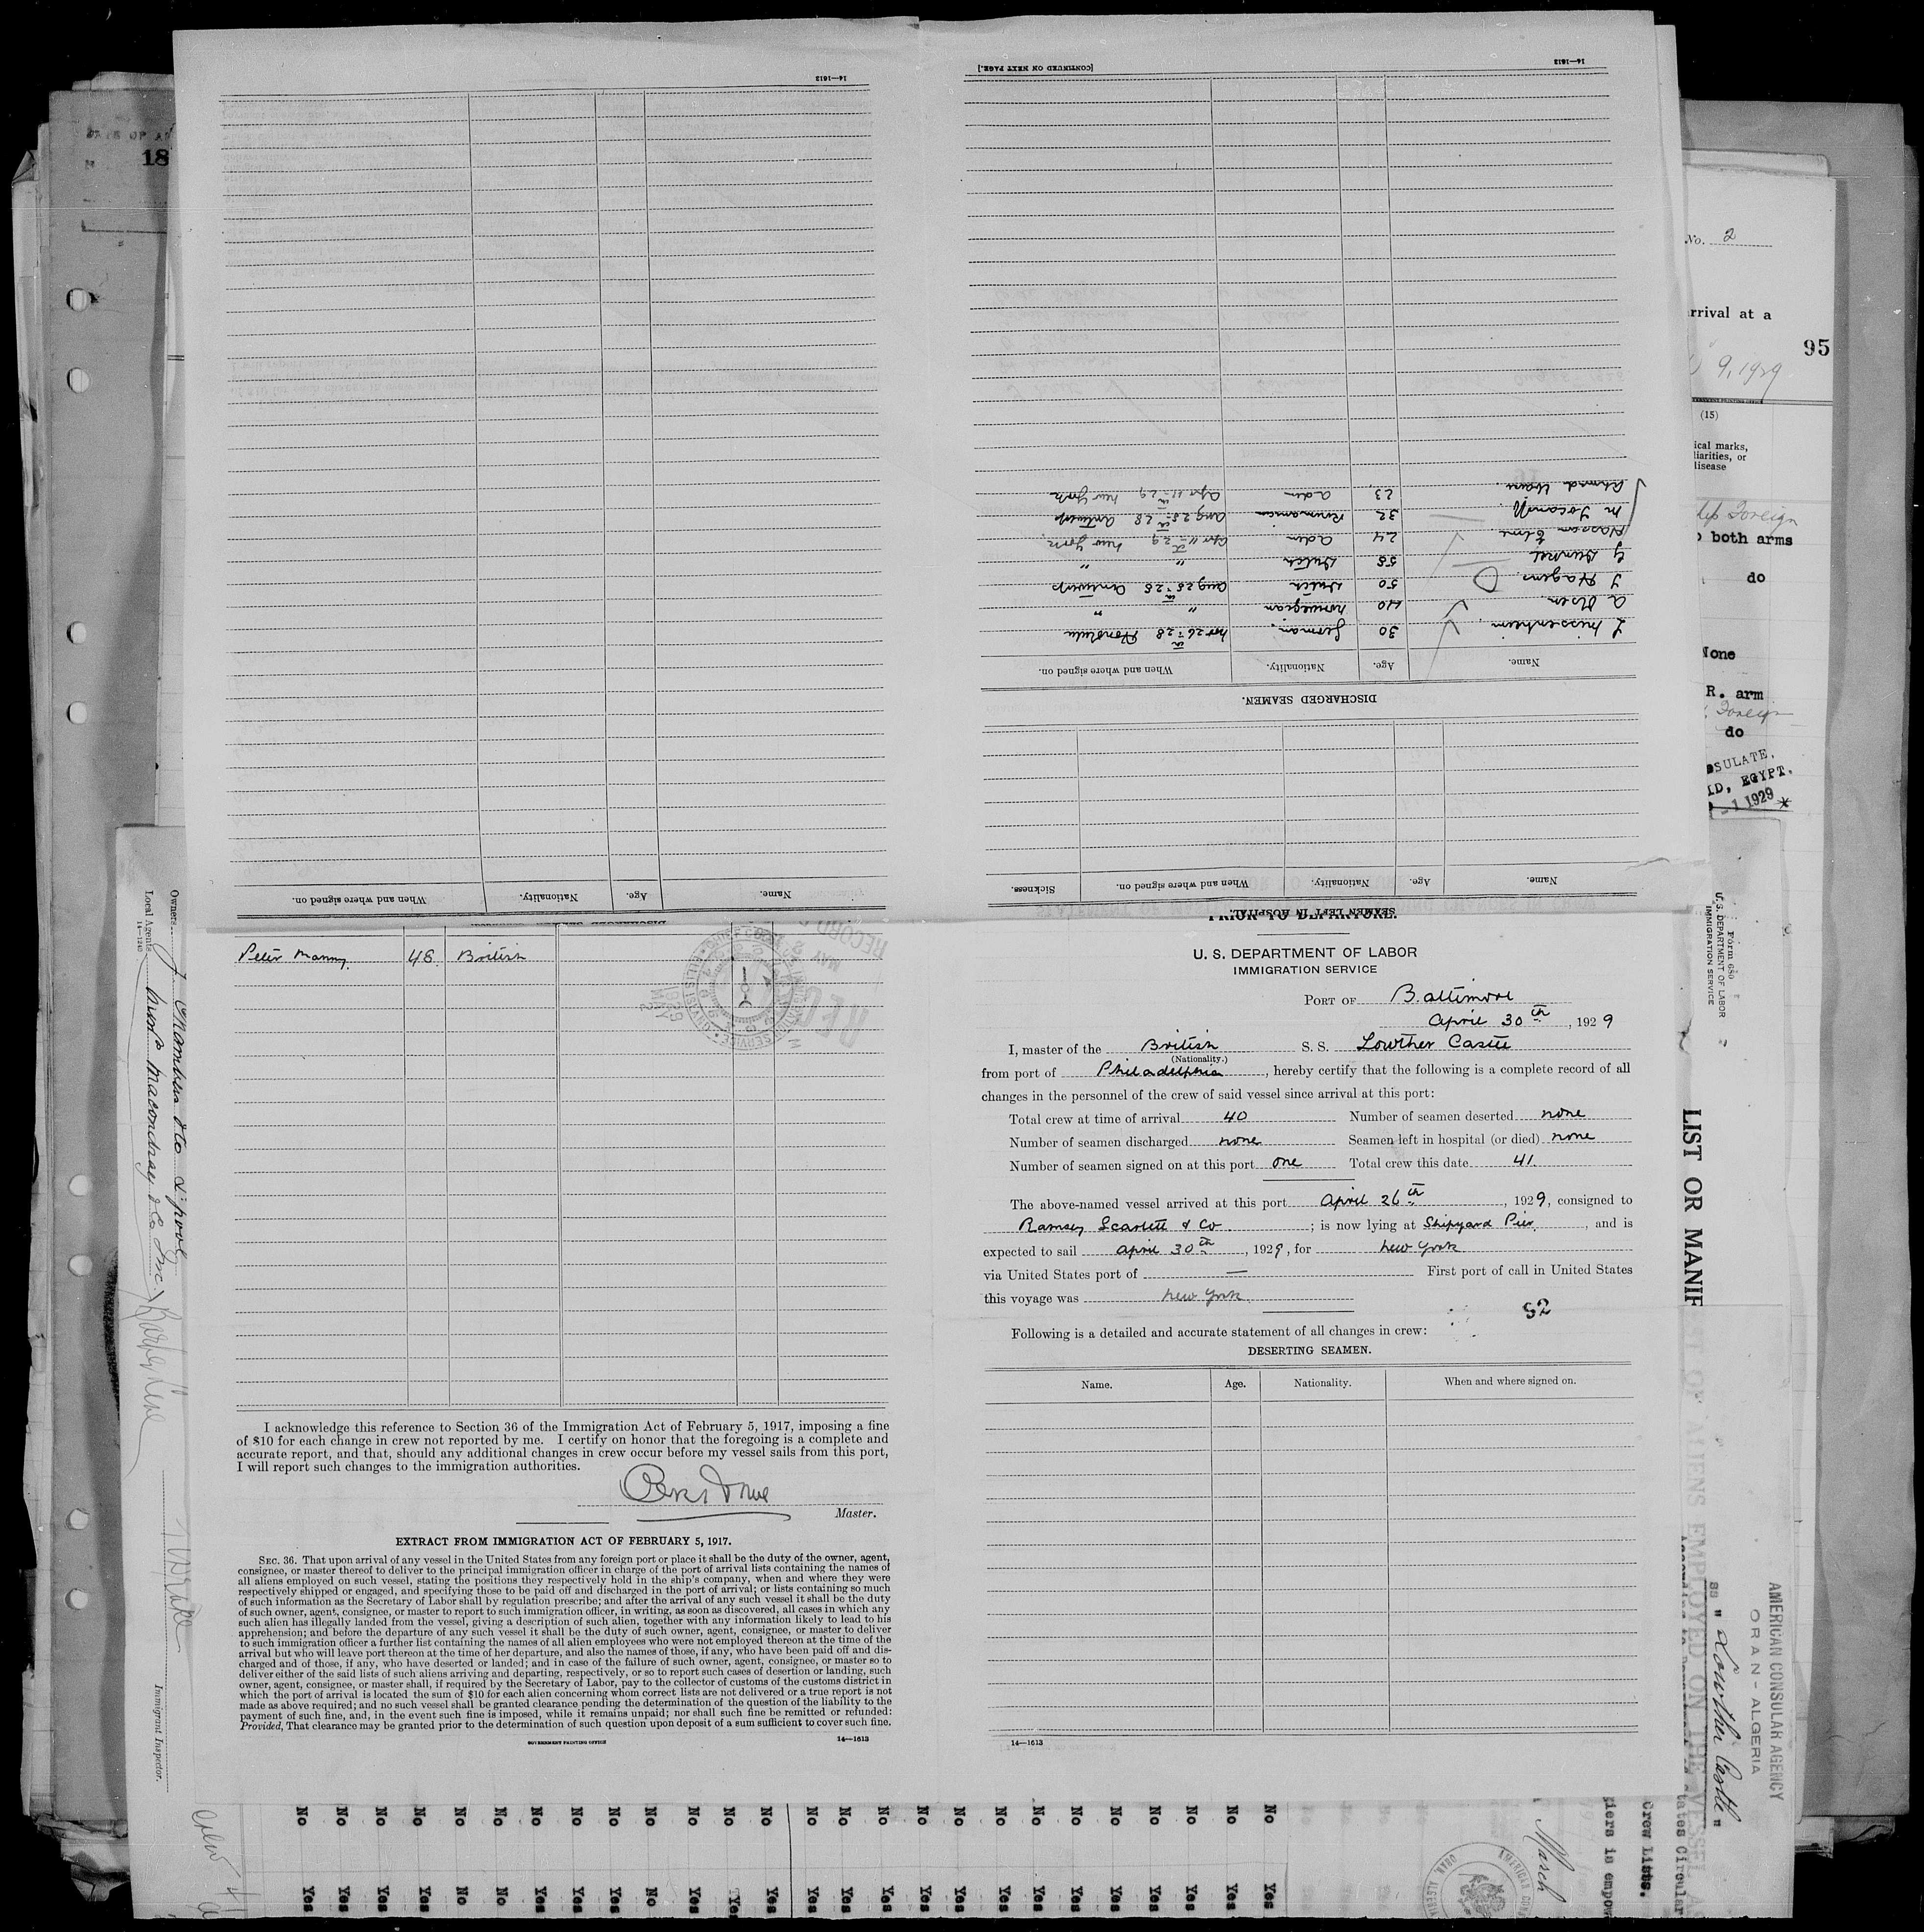 14—1613
[CONTINUED ON NEXT PAGE.]
14—1613
Ahmed 23 Aden Apr 11th 29 New York
M 32 Roumanian Aug 28th 28 Antwerp
Hassan 24 Aden Apr 11th 29 New York.
G 58 Dutch " "
J Hagens. 50 Dutch Aug 28th 28 Antwerp
A Olsen. 40 Norwegian " "
L 30 German. Nov 26th 28 Honolulu
Name. Age. Nationality. When and where signed on.
DISCHARGED SEAMEN.
Name. Age. Nationality. When and where signed on. Sickness.
SEAMEN LEFT IN HOSPITAL.
Name. Age. Nationality. When and where signed on.
DISCHARGED SEAMEN.
Peter Manny. 48. British
MAY 2 1929
I acknowledge this reference to Section 36 of the Immigration Act of February 5, 1917, imposing a fine
of $10 for each change in crew not reported by me. I certify on honor that the foregoing is a complete and
accurate report, and that, should any additional changes in crew occur before my vessel sails from this port,
I will report such changes to the immigration authorities.
Master.
EXTRACT FROM IMMIGRATION ACT OF FEBRUARY 5, 1917.
SEC. 36. That upon arrival of any vessel in the United States from any foreign port or place it shall be the duty of the owner, agent,
consignee, or master thereof to deliver to the principal immigration officer in charge of the port of arrival lists containing the names of
all aliens employed on such vessel, stating the positions they respectively hold in the ship's company, when and where they were
respectively shipped or engaged, and specifying those to be paid off and discharged in the port of arrival; or lists containing so much
of such information as the Secretary of Labor shall by regulation prescribe; and after the arrival of any such vessel it shall be the duty
of such owner, agent, consignee, or master to report to such immigration officer, in writing, as soon as discovered, all cases in which any
such alien has illegally landed from the vessel, giving a description of such alien, together with any information likely to lead to his
apprehension; and before the departure of any such vessel it shall be the duty of such owner, agent, consignee, or master to deliver
to such immigration officer a further list containing the names of all alien employees who were not employed thereon at the time of the
arrival but who will leave port thereon at the time of her departure, and also the names of those, if any, who have been paid off and dis-
charged and of those, if any, who have deserted or landed; and in case of the failure of such owner, agent, consignee, or master so to
deliver either of the said lists of such aliens arriving and departing, respectively, or so to report such cases of desertion or landing, such
owner, agent, consignee, or master shall, if required by the Secretary of Labor, pay to the collector of customs of the customs district in
which the port of arrival is located the sum of $10 for each alien concerning whom correct lists are not delivered or a true report is not
made as above required; and no such vessel shall be granted clearance pending the determination of the question of the liability to the
payment of such fine, and, in the event such fine is imposed, while it remains unpaid; nor shall such fine be remitted or refunded:
Provided, That clearance may be granted prior to the determination of such question upon deposit of a sum sufficient to cover such fine.
GOVERNMENT PRINTING OFFICE 14—1613
PRIOR TO DEPARTURE.
U. S. DEPARTMENT OF LABOR
IMMIGRATION SERVICE
PORT OF Baltimore
April 30th, 1929
I, master of the British S. S. Lowther Castle
(Nationality.)
from port of Philadelphia, hereby certify that the following is a complete record of all
changes in the personnel of the crew of said vessel since arrival at this port:
Total crew at time of arrival 40 Number of seamen deserted none
Number of seamen discharged none Seamen left in hospital (or died) none
Number of seamen signed on at this port one Total crew this date 41.
The above-named vessel arrived at this port April 26th, 1929, consigned to
Ramsey Scarlett & Co; is now lying at Shipyard Pier, and is
expected to sail April 30th, 1929, for New York
via United States port of — First port of call in United States
this voyage was New York.
52
Following is a detailed and accurate statement of all changes in crew:
DESERTING SEAMEN.
Name. Age. Nationality. When and where signed on.
14—1613
18
No. 2
arrival at a
95
9, 1929
(15)
ical marks,
liarities, or
disease
Foreign
both arms
do
None
R. arm
Foreign
do
SULATE,
ID, EGYPT.
1 1929
Owners J Chambers & Co L'pool
Local Agents Macondray & Co Inc
14—1240
Immigrant Inspector.
Form 680
U. S. DEPARTMENT OF LABOR
IMMIGRATION SERVICE
LIST OR MANIFEST OF ALIENS EMPLOYED ON THE VESSEL
SS "Lowther Castle"
AMERICAN CONSULAR AGENCY
ORAN - ALGERIA
tates Circular
Crew Lists.
giers is empow
March
No No No No No No No No No No No No No No No No No No No No No No No No No No
Yes Yes Yes Yes No No Yes Yes Yes No Yes Yes Yes Yes Yes Yes Yes Yes Yes Yes Yes Yes Yes Yes Yes